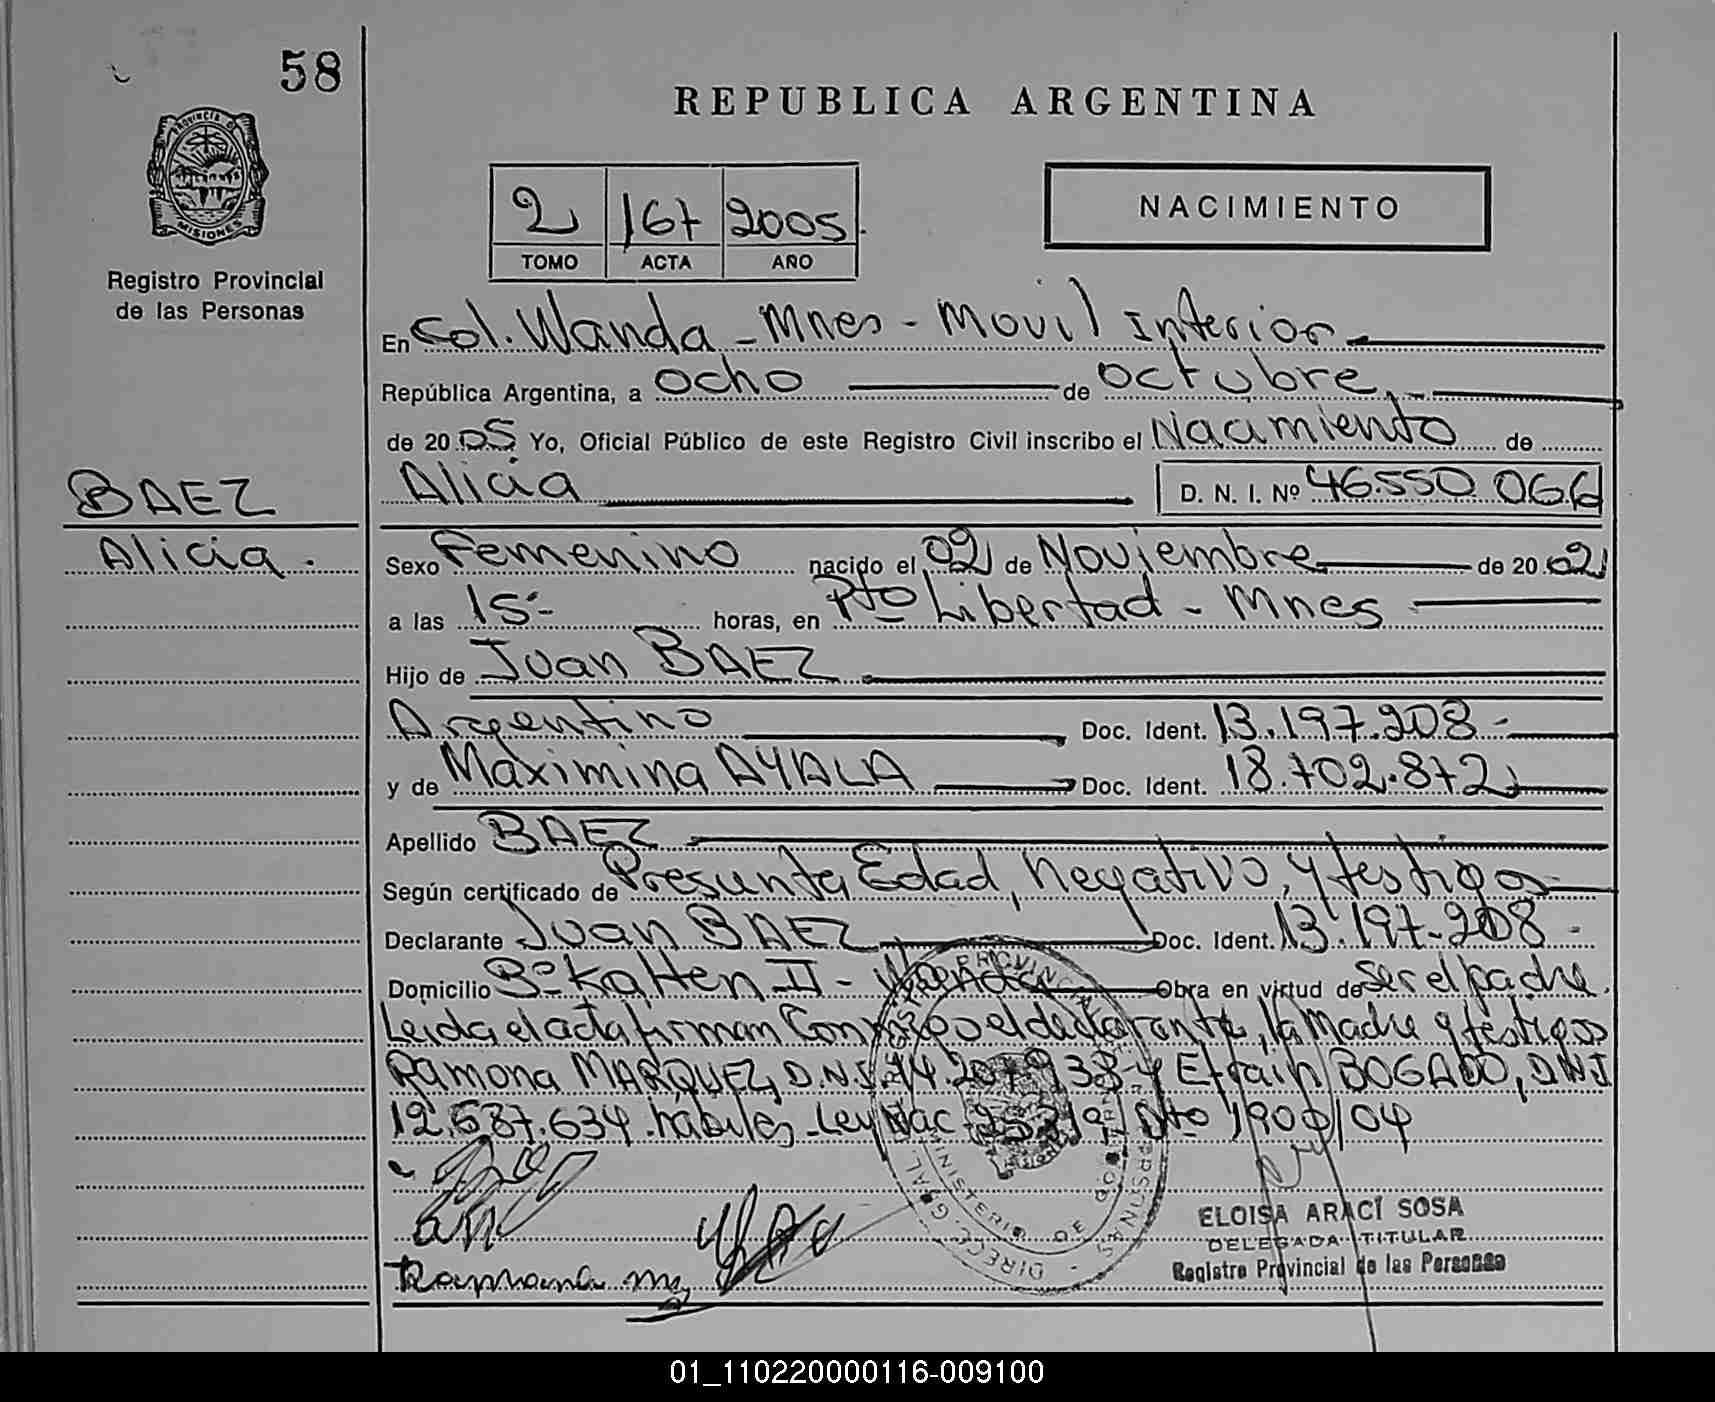 58
REPUBLICA ARGENTINA
PROVINCIA D
MISIONES
Registro Provincial
de las Personas
2 167 2005
TOMO ACTA AÑO
NACIMIENTO
En Col. Wanda - Mnes - Movil Interior
República Argentina, a ocho de octubre,
de 2005 Yo, Oficial Público de este Registro Civil inscribo el Nacimiento de
BAEZ
Alicia D. N. I. Nº 46.550.066
Alicia.
Sexo Femenino nacido el 02 de Noviembre de 2002
a las 15:- horas, en Pto Libertad - Mnes
Hijo de Juan BAEZ
Argentino Doc. Ident. 13.197.208-
y de Maximina AYALA Doc. Ident. 18.702.872
Apellido BAEZ
Según certificado de Presunta Edad, negativo, y testigos
Declarante Juan BAEZ Doc. Ident. 13.197.208-
Domicilio Bº Katten II - Wanda Obra en virtud de ser el padre.
Leida el acta firman Conmigo el declarante, la Madre y testigos
Ramona MARQUEZ, D.N.I. 14.20 933 y Efrain BOGADO, DNI
12.687.634 habiles - Ley Nac 25819 Dto 1900/04
Ramona
ELOISA ARACI SOSA
DELEGADA TITULAR
Registro Provincial de las Personas
DIRECC. GRAL. DEL REGISTRO PROVINCIAL DE LAS PERSONAS
MINISTERIO DE GOBIERNO
01_110220000116-009100